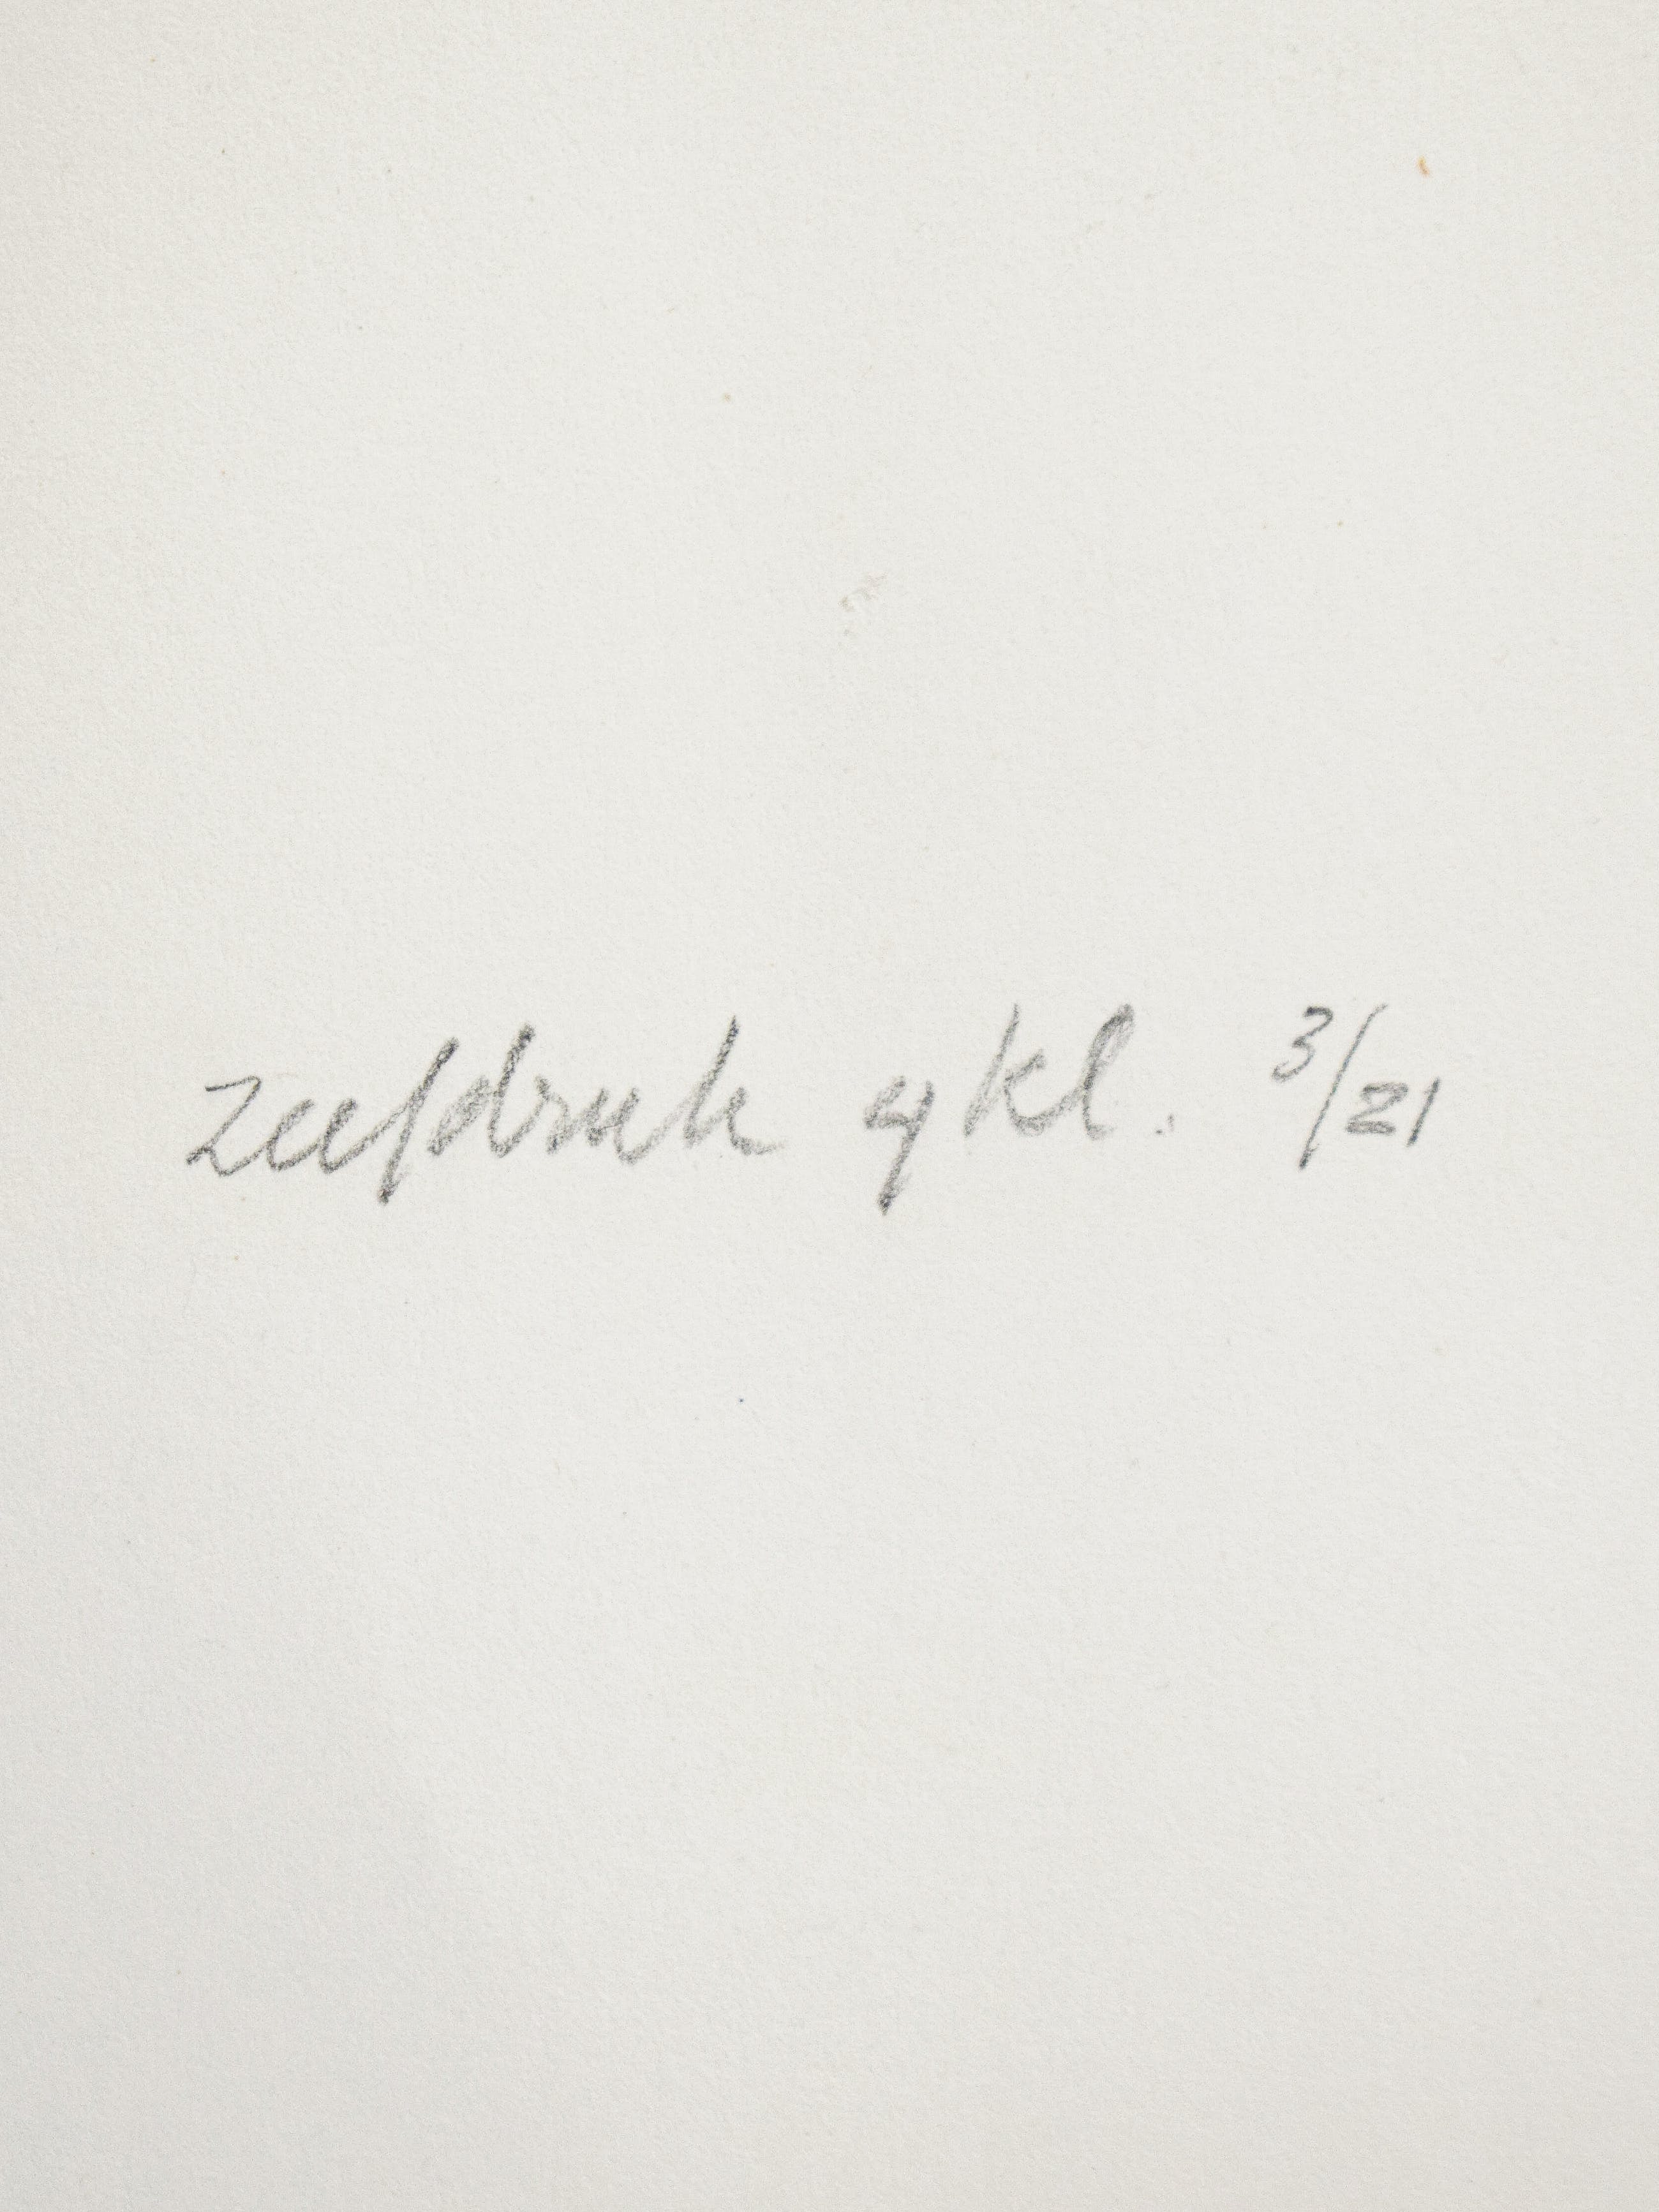 zeefdruk 4 kl. 3/21